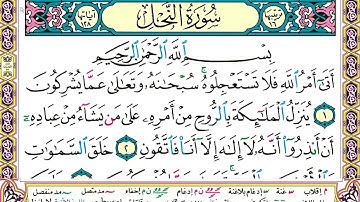 سُورَةُ النَّحْلِ
بِسْمِ اللَّهِ الرَّحْمَٰنِ الرَّحِيمِ
أَتَىٰ أَمْرُ اللَّهِ فَلَا تَسْتَعْجِلُوهُ ۚ سُبْحَانَهُ وَتَعَالَىٰ عَمَّا يُشْرِكُونَ
١ يُنَزِّلُ الْمَلَائِكَةَ بِالرُّوحِ مِنْ أَمْرِهِ عَلَىٰ مَنْ يَشَاءُ مِنْ عِبَادِهِ
أَنْ أَنْذِرُوا أَنَّهُ لَا إِلَٰهَ إِلَّا أَنَا فَاتَّقُونِ ٢ خَلَقَ السَّمَاوَاتِ